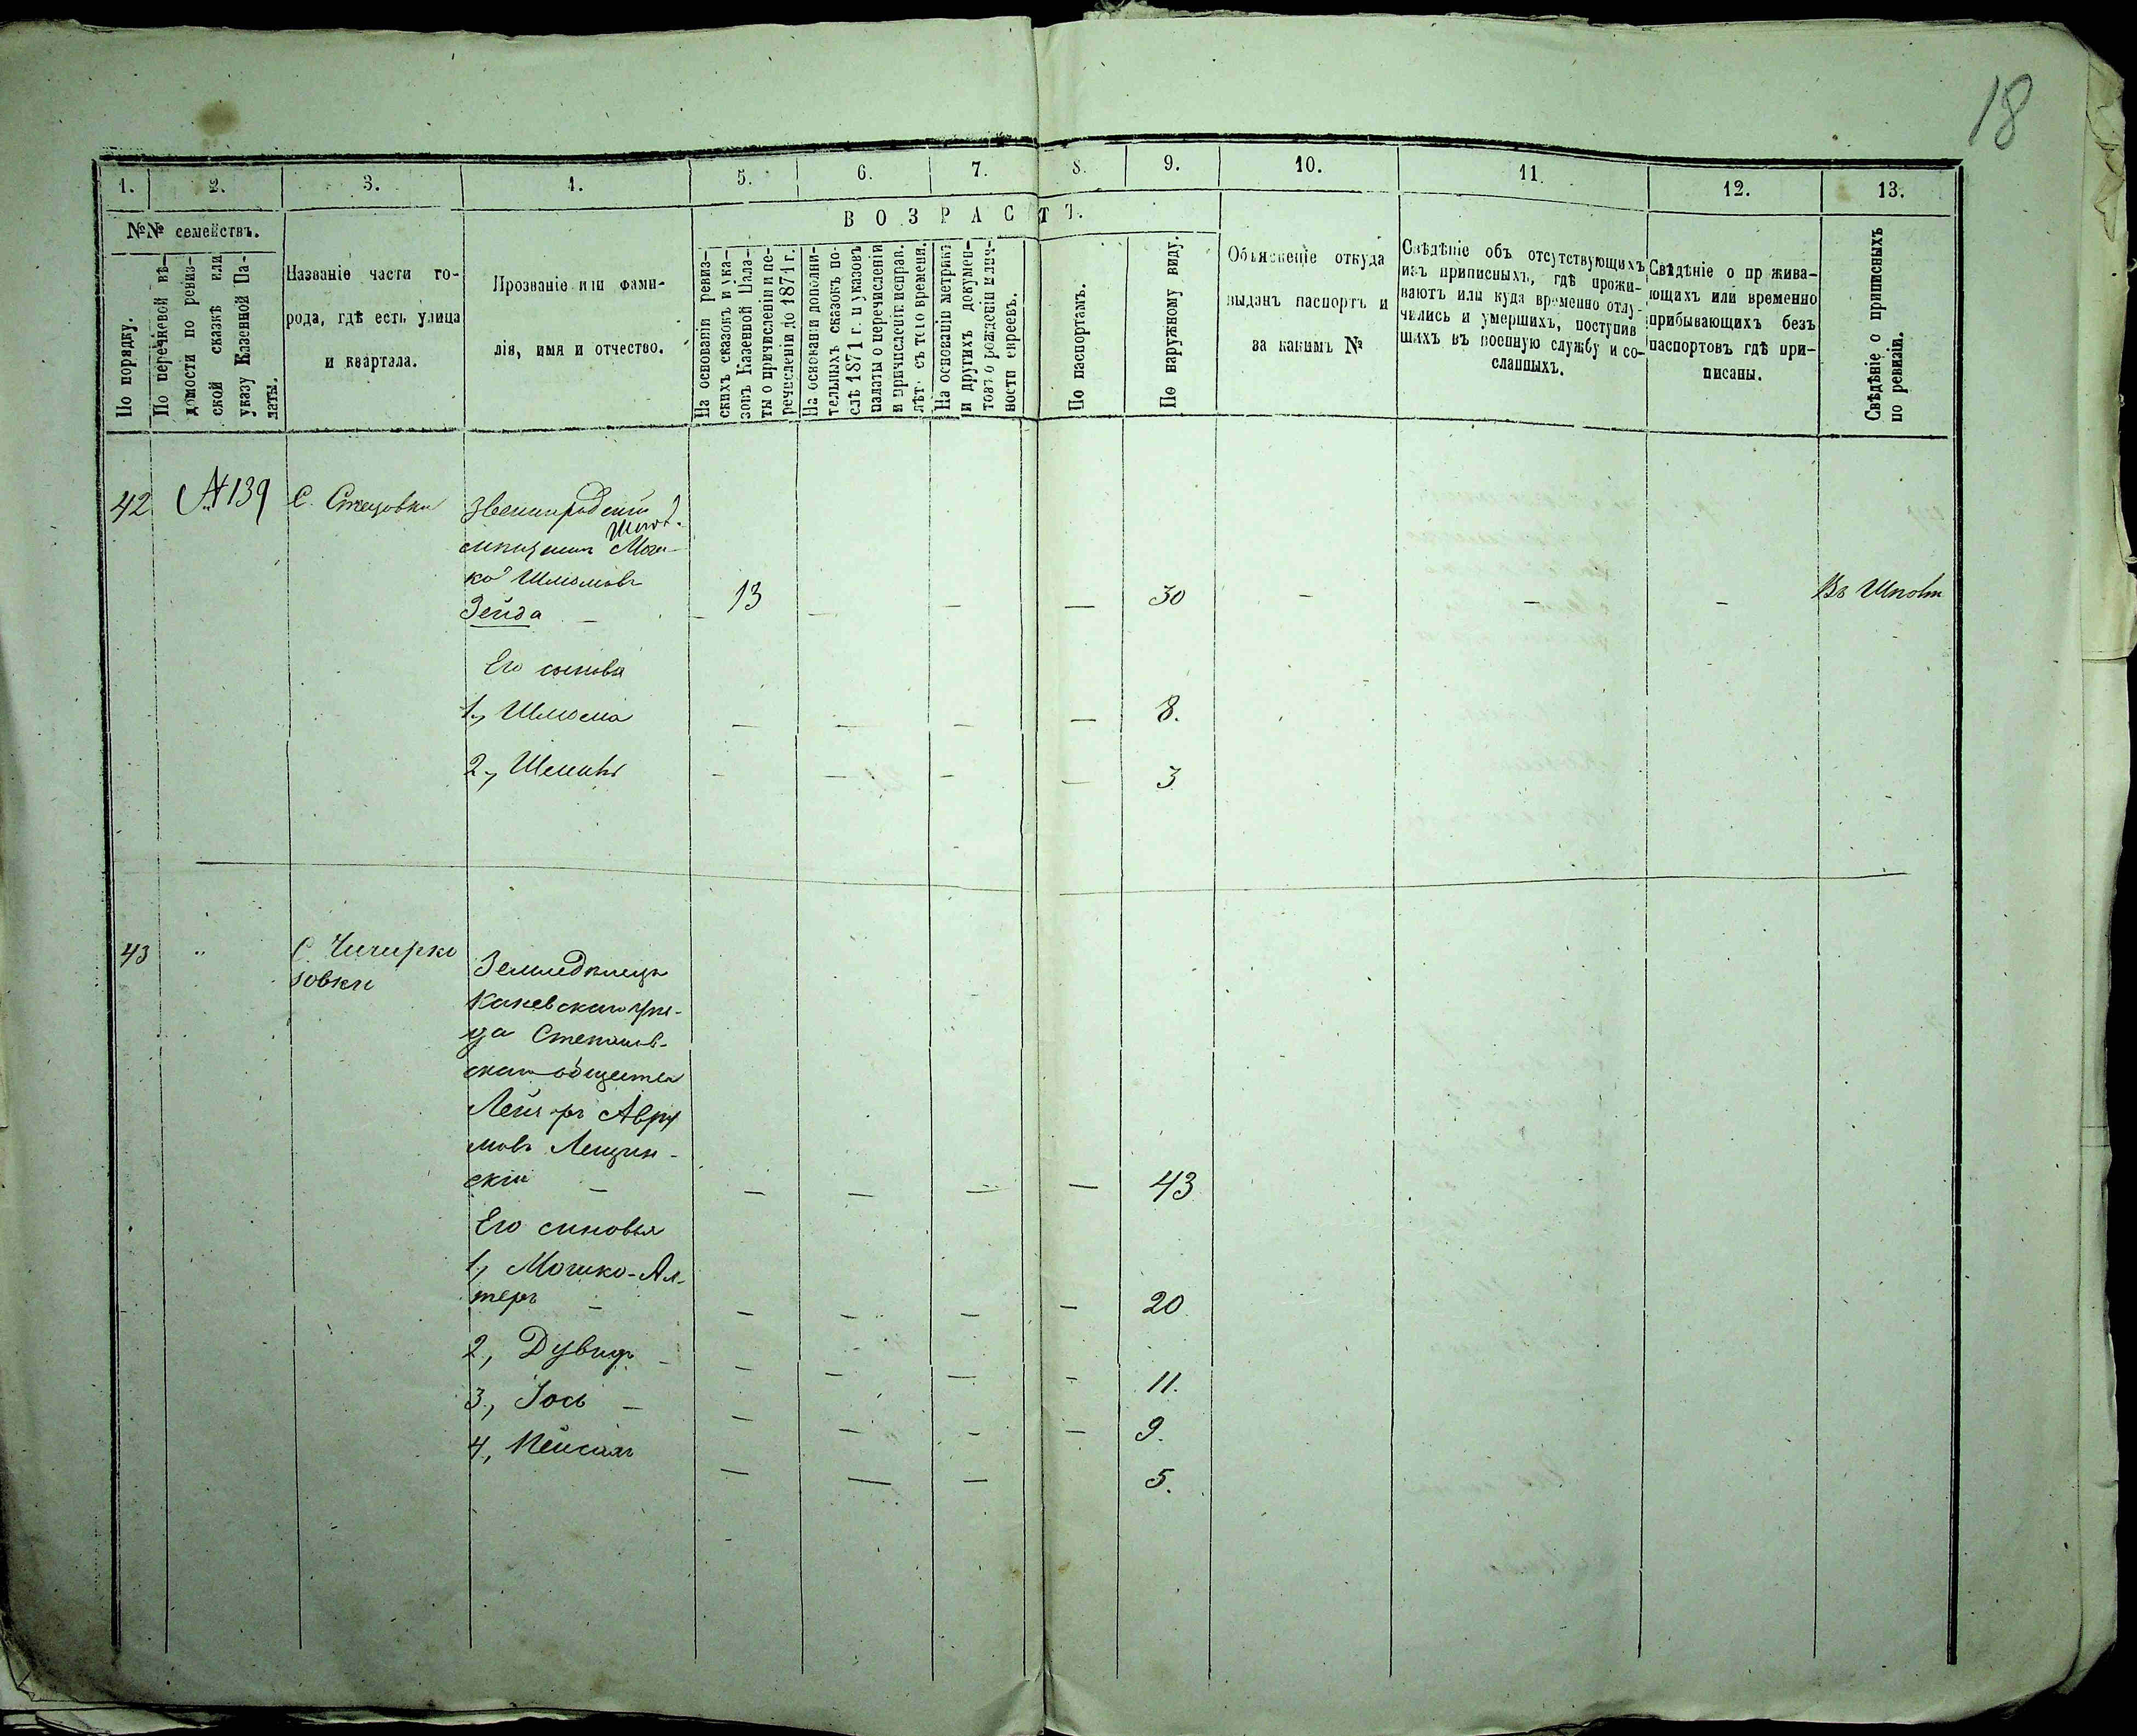 18
1. 2. 3. 4. 5. 6. 7. 8. 9. 10. 11. 12. 13.
ВОЗРАСТЪ.
№№ семействъ.
По порядку.
По перечневой вѣ-
домости по ревиз-
ской сказкѣ или
указу Казенной Па-
латы.
Названіе части го-
рода, гдѣ есть улица
и квартала.
Прозваніе или фами-
лія, имя и отчество.
На основаніи ревиз-
скихъ сказокъ и ука-
зовъ Казенной Пала-
ты о причисленіи и пе-
речисленіи до 1871 г.
На основаніи дополни-
тельныхъ сказокъ по-
слѣ 1871 г. и указовъ
палаты о перечисленіи
и причисленіе исправ.
лѣтъ съ того времени.
На основаніи метрикъ
и другихъ докумен-
товъ о рожденіи и лич-
ности евреевъ.
По паспортамъ.
По наружному виду.
Объясненіе откуда
выданъ паспортъ и
за какимъ №
Свѣдѣніе объ отсутствующихъ
изъ приписныхъ, гдѣ прожи-
ваютъ или куда временно отлу-
чились и умершихъ, поступив
шихъ въ военную службу и со-
сланныхъ.
Свѣдѣніе о пр жива-
ющихъ или временно
прибывающихъ безъ
паспортовъ гдѣ при-
писаны.
Свѣдѣніе о приписныхъ
по ревизіи.
42 №139 С. Стецовки Звенигородскій
Шпол.
мѣщанин Мош-
ко Шлиомовъ
Зейда – 13 – – – 30 – – – Въ Шполѣ
Его сыновья
1, Шлиома – – – – 8.
2, – – – – 3
43 " С. Чичирко
зовки
Земледѣлецъ
Каневскаго уѣз-
да Степанов-
скаго общества
Лейзоръ Авру
мовъ Лещин-
скій – – – – – 43
Его сыновья
1, Мошко-Ал-
теръ – – – – – 20
2, Дувидъ – – – – – 11.
3, Іось – – – – – 9.
4, Пейсахъ – – – 5.